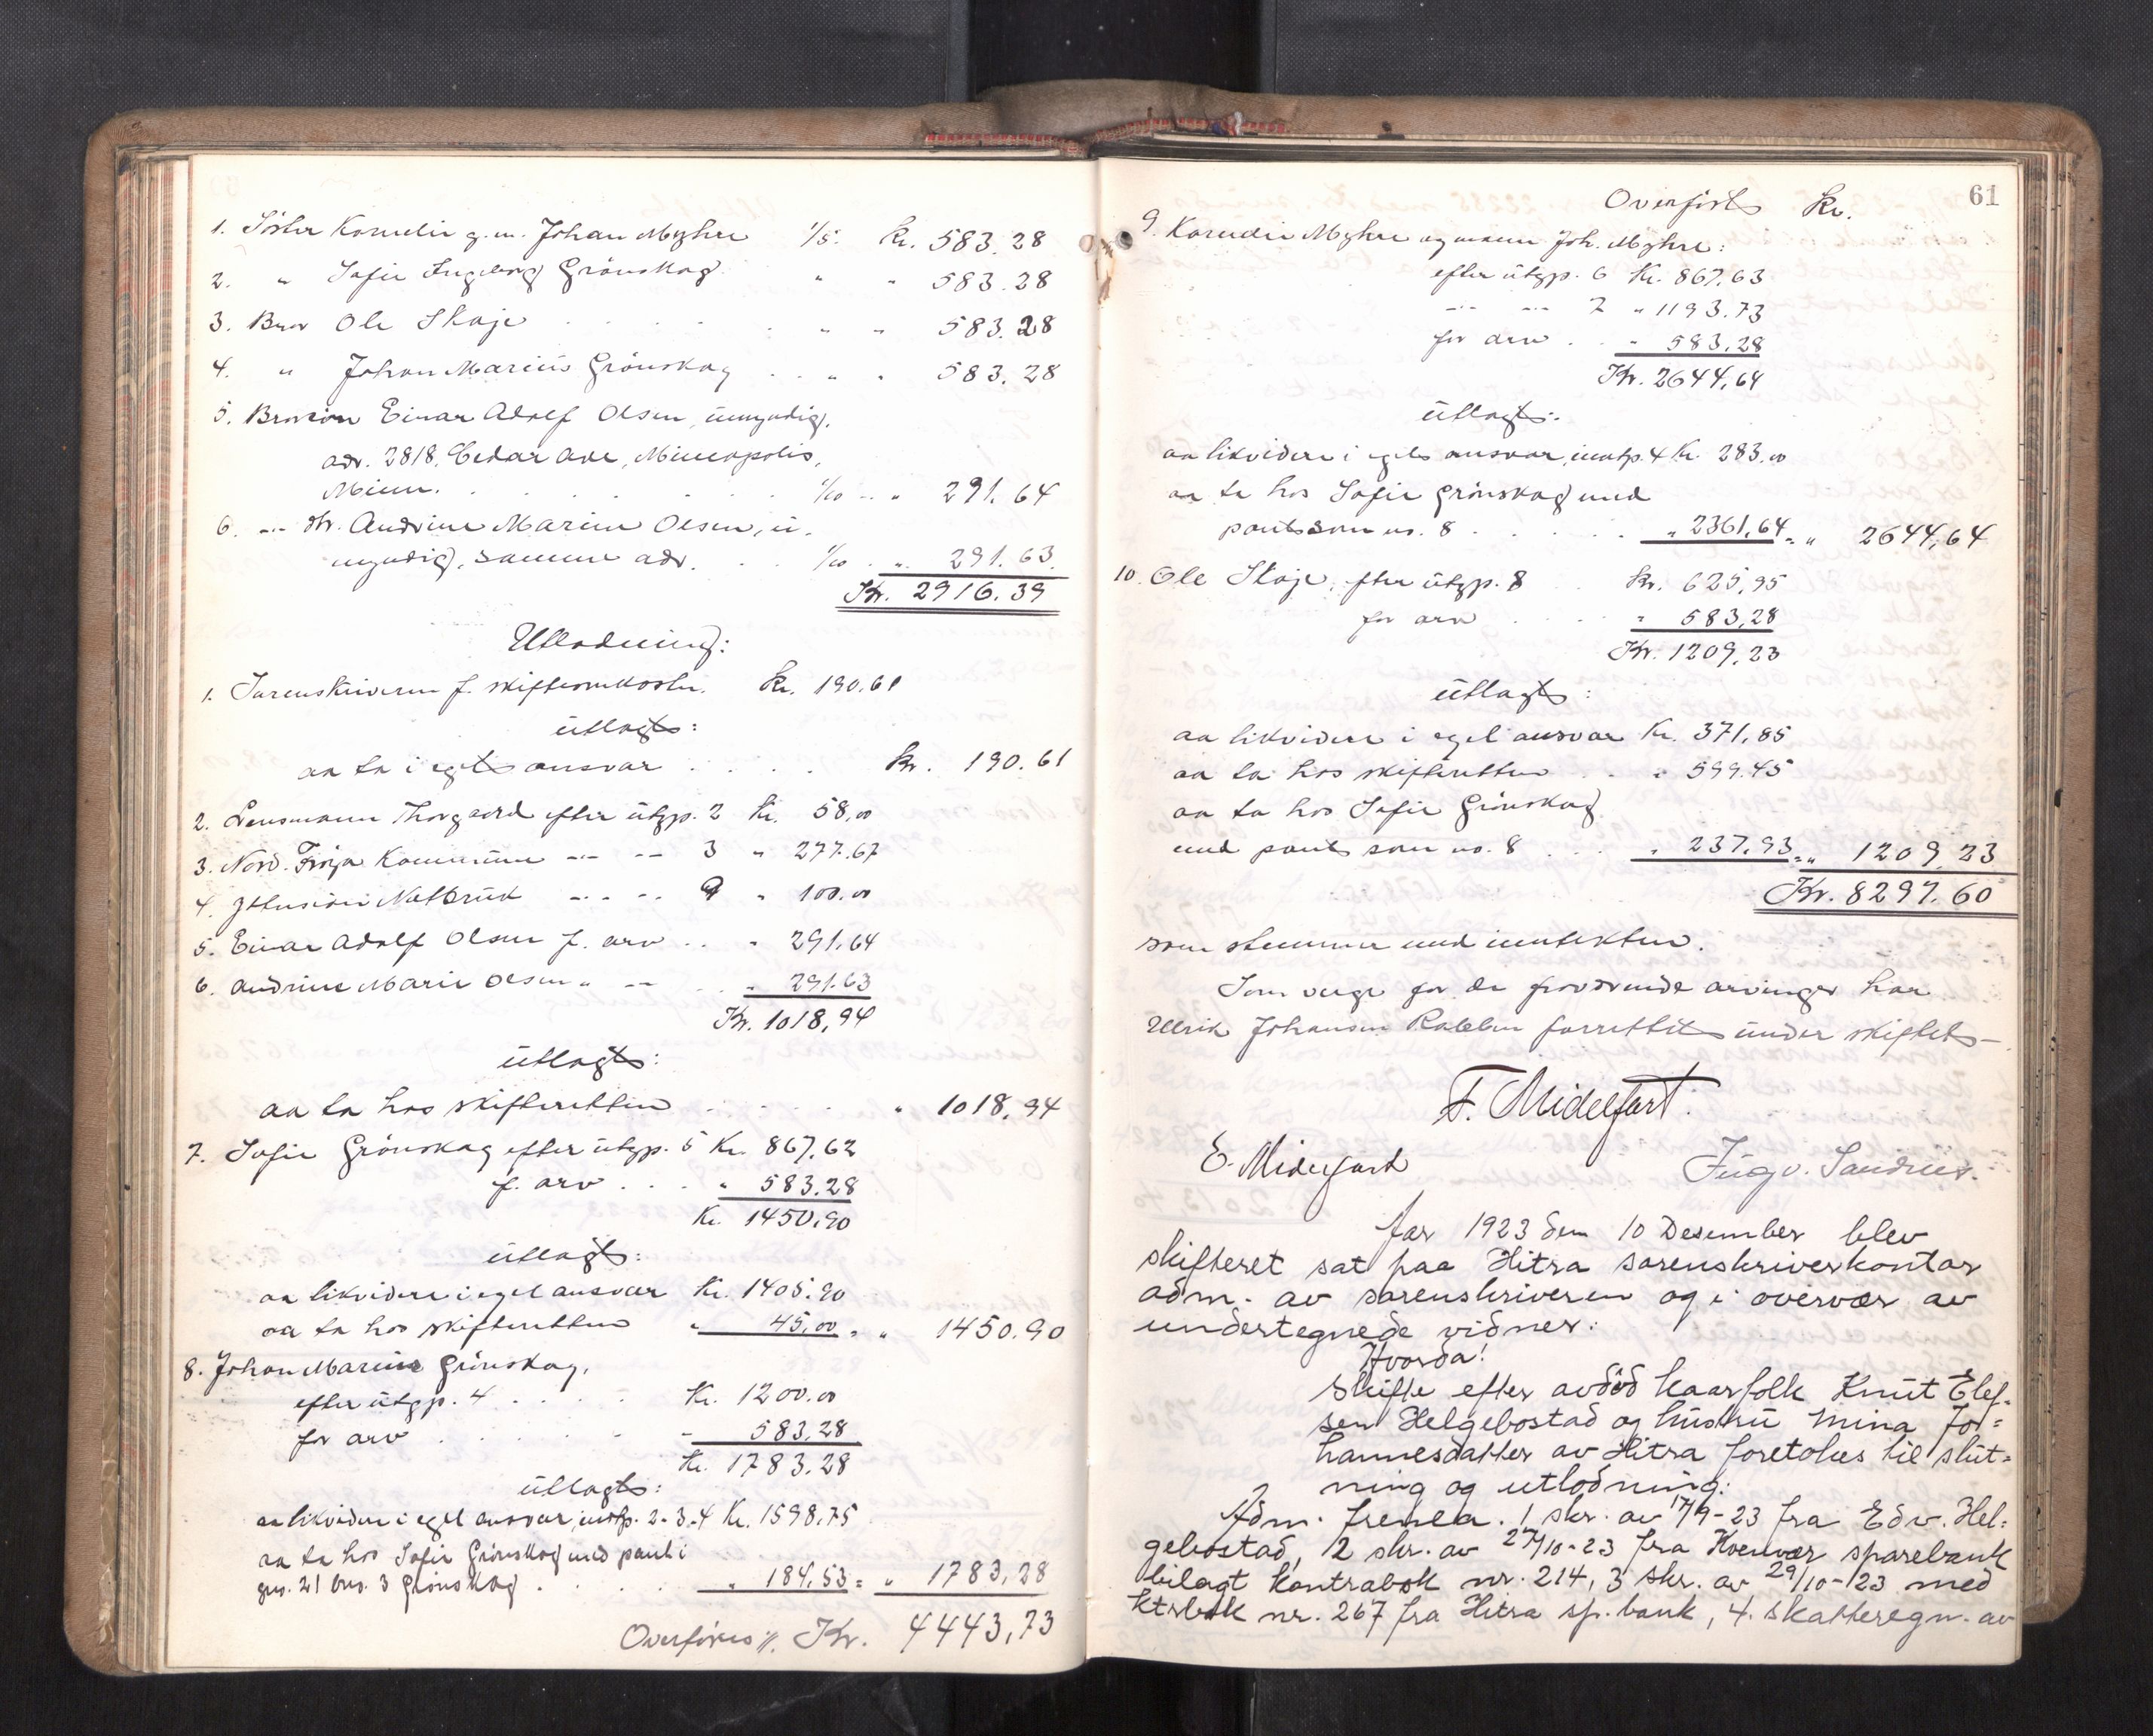 1. Söster Kornelie g.m. Johan Myhre 1/5. Kr. 583.28
2. " Sofie Ingeborg Grönskag " " 583.28
3. Bror Ole Skaje . . . . . " " 583.28
4. " Johan Marius Grönskag . . " " 583.28
5. Brorsön Einar Adolf Olsen, umyndig,
adr. 2818, Cedar Ave, Mineapolis,
Minn. . . . . . . . 1/10 " " 291.64
6. -"- dtr. Andrine Marie Olsen, u-
myndig, samme adr. . . 1/10 . " 291.63.
Kr. 2916.39
Utlodning:
1. Sorenskriveren f. skifteomkostn. Kr. 190.61
utlagt:
aa ta i eget ansvar . . . . Kr. 190.61
2. Lensmann Thorgaard efter utgp. 2 Kr. 58,00
3. Nord-Fröja Kommune -"- -"- 3 " 277.67
4. Natbruk -"- -"- 9 " 100.00
5. Einar Adolf Olsen f. arv . . " 291,64
6. Andrine Marie Olsen " -"- . . " 291.63
Kr. 1018,94
utlagt:
aa ta hos skifteretten . . . . . " 1018,94
7. Sofie Grönskag efter utgp. 5 Kr. 867.62
f. arv . . . " 583.28
Kr. 1450,90
utlagt:
aa likvidere i eget ansvar Kr. 1405.90
aa ta hos skifteretten " 45,00 = " 1450.90
8. Johan Marius Grönskag,
efter utgp. 4 . . . . Kr. 1200.00
for arv . . . . . " 583,28
Kr. 1783.28
utlagt:
aa likvidere i eget ansvar, inntp. 2-3-4 Kr. 1598,75
aa ta hos Sofie Grönskag med pant i
gno. 21 bno. 3 Grönskag . . . . " 184,53 = " 1783,28
Overföres ·/. Kr. 4443,73
61
Overfört Kr.
9. Kornelie Myhre og mann Joh. Myhre:
efter utgp. 6 Kr. 867,63
-"- -"- 7 " 1193.73
for arv . . " 583,28
Kr. 2644,64
utlagt:
aa likvidere i eget ansvar, inntp. 4 Kr. 283.00
aa ta hos Sofie Grönskag med
pant som no. 8 . . . . . " 2361,64 = " 2644,64
10. Ole Skaje, efter utgp. 8 . Kr. 625,95
for arv . . . . " 583,28
Kr. 1209,23
utlagt:
aa likvidere i eget ansvar Kr. 371,85
aa ta hos skifteretten . . " 599.45
aa ta hos Sofie Grönskag
med pant som no. 8 . . . " 237.93 = " 1209,23
Kr. 8297.60
som stemmer med inntekten.
Som verge for de fraværende arvinger har
Ulrik Johansen Rabben forrettet under skiftet —
F. Midelfart.
E. Midelfart Ingv. Sandnes.
Aar 1923 den 10 Desember blev
skifteret sat paa Hitra sorenskriverkontor
adm. av sorenskriveren og i overvær av
undertegnede vidner:
Hvorda!
Skifte efter avdöd kaarfolk Knut Elef-
sen Helgebostad og hustru Mina Jo=
hannesdatter av Hitra foretokes til slut=
ning og utlodning:
Adm. fremla. 1 skr. av 17/9-23 fra Edv. Hel=
gebostad, 2 skr. av 27/10-23 fra Kvenvær sparebank
bilagt kontrabok nr. 214, 3 skr. av 29/10-23 med
ktrbok nr. 267 fra Hitra sp.bank, 4. skatteregn. av